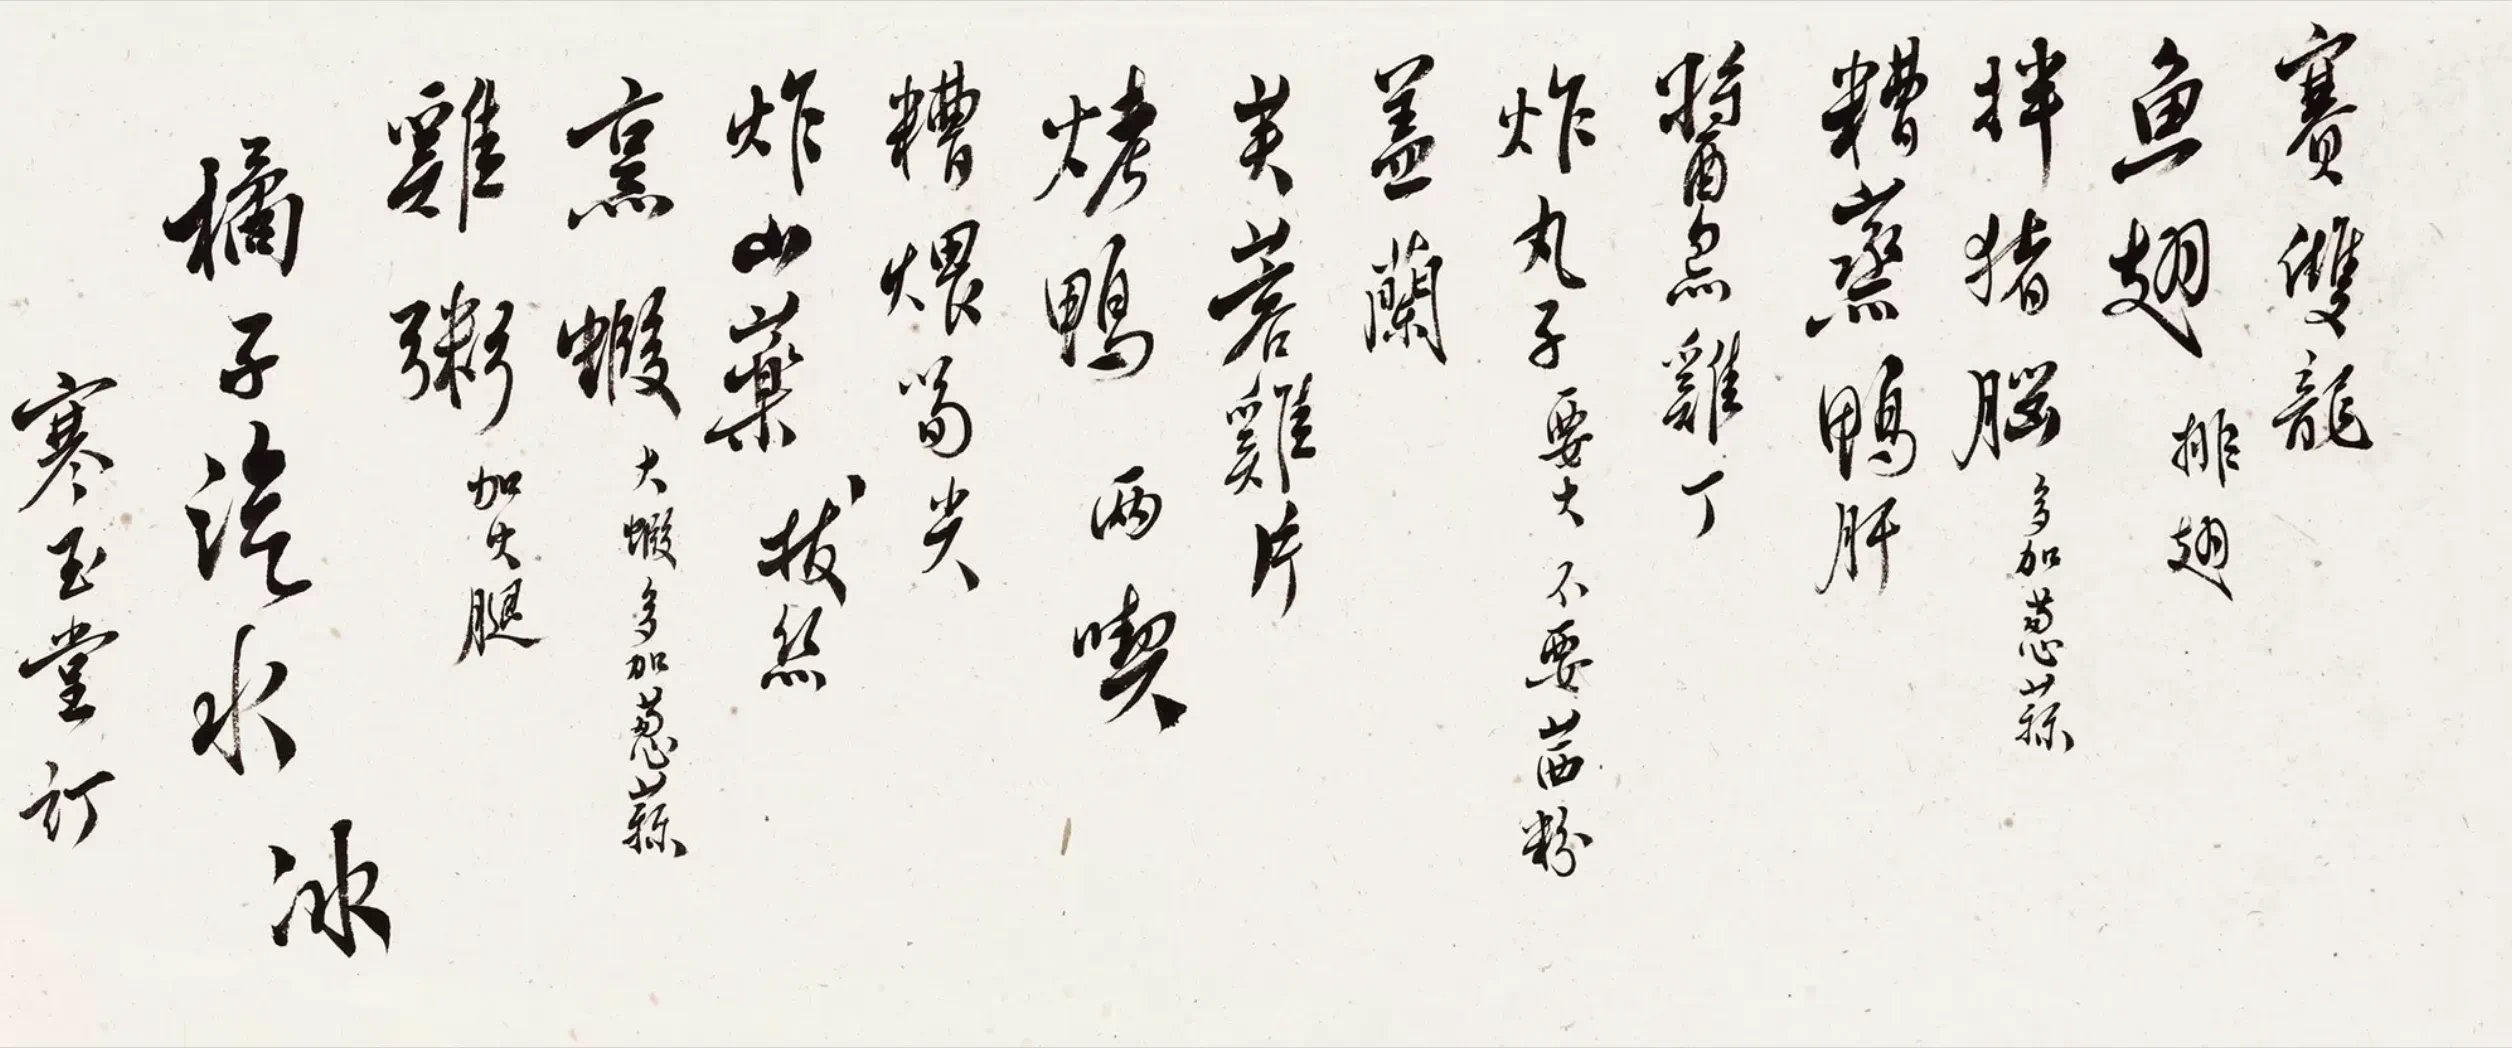 賽雙龍
魚翅 排翅
拌豬腦 多加蔥蒜
糟蒸鴨肝
醬爆雞丁
炸丸子 要大 不要茜粉
蓋蘭
芙蓉雞片
烤鴨 兩喫
糟煨筍尖
炸山藥 拔絲
烹蝦 大蝦多加蔥蒜
雞粥 加火腿
橘子汽水 冰
寒玉堂訂